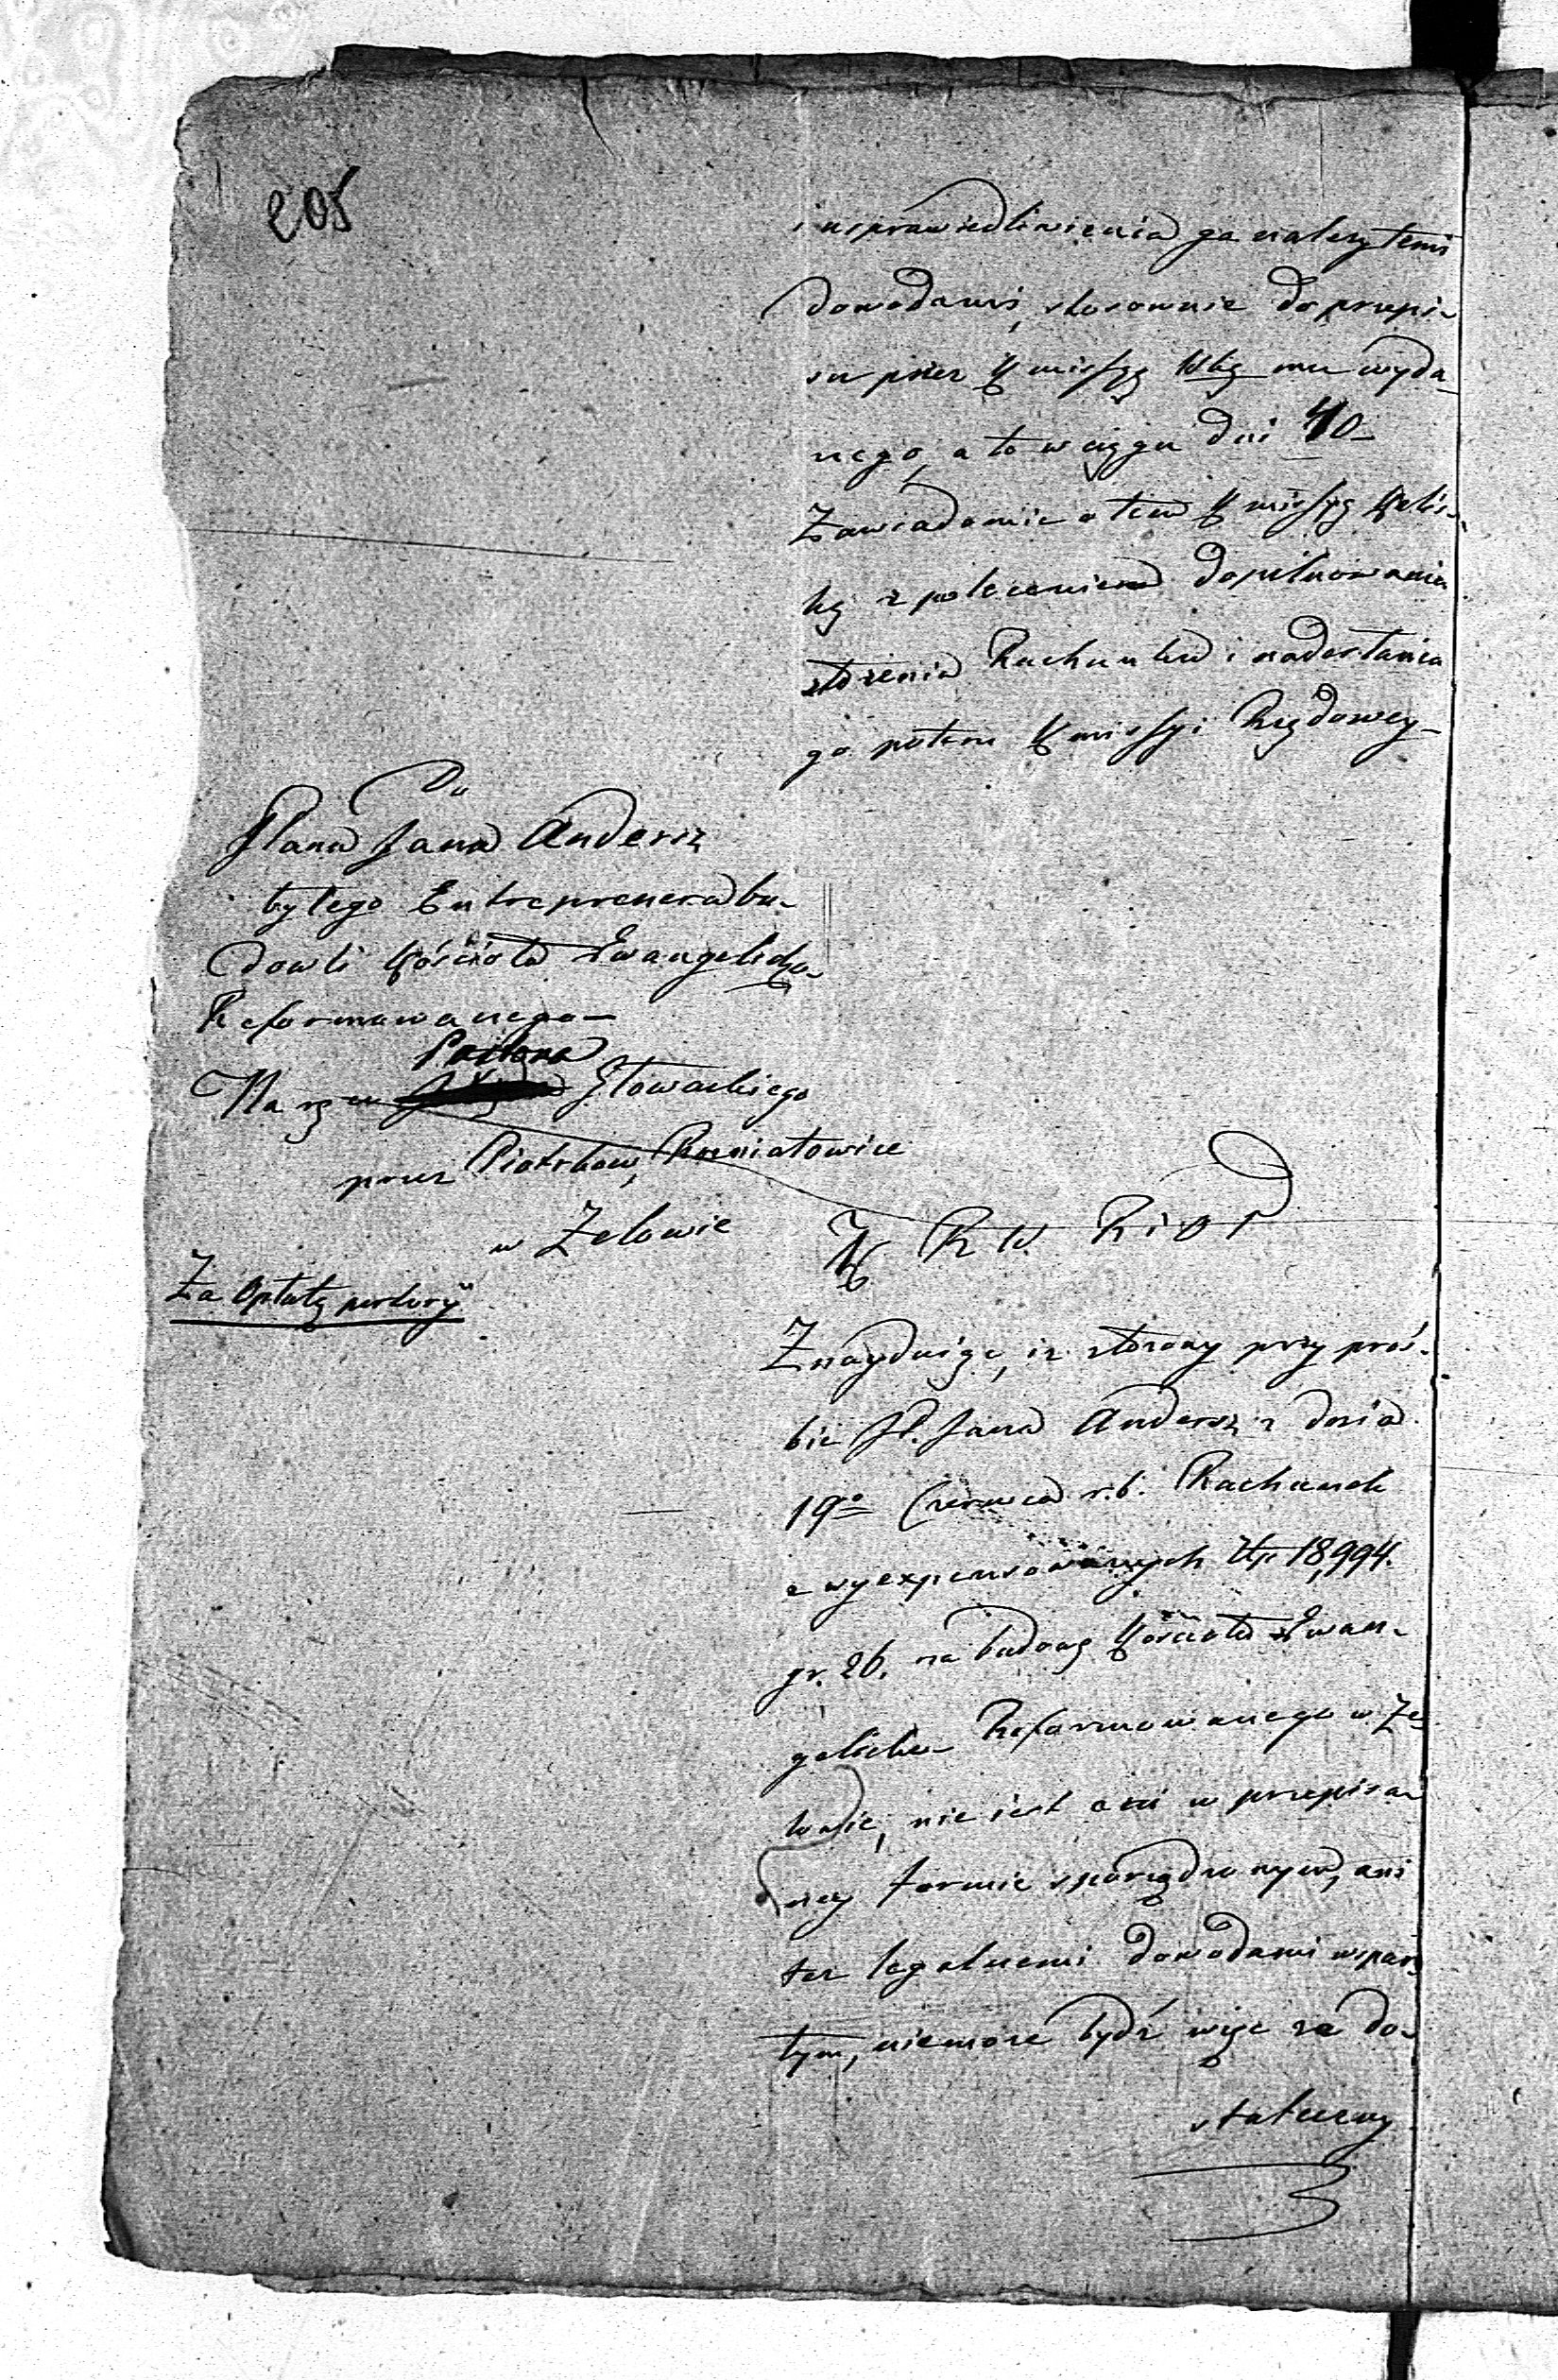 205
i usprawiedliwienia go należytemi
dowodami, stosownie do przepi-
su przez Kommissyą Wką mu wyda-
nego, a to w ciągu dni 40-
Zawiadomić o tem Kommissyą Kalis-
ką z poleceniem dopilnowania
złożenia Rachunku i nadesłania
go potem Kommissyi Rządowey-
Do
Pana Jana Andersz
byłego Entreprenera bu-
dowli Kościoła Ewangelicko-
Reformowanego-
Pastora
Na ręce Głowackiego
przez Piotrków,
w Zelowie
Za Opłatą portoryi
K R W. R i O P
Znayduiąc, iż złożony przy proś-
bie P. Jana Andersz z dnia
19o Czerwca r.b. Rachunek
z wyexpensowanych Złp 18,994.
gr. 26. na budowę Kościoła Ewan-
gelicko- Reformowanego w Ze-
lowie, nie iest ani w przepisa-
ney formie sporządzonym, ani
też legalnemi dowodami wspar-
tym, niemoże bydź więc za do-
stateczny